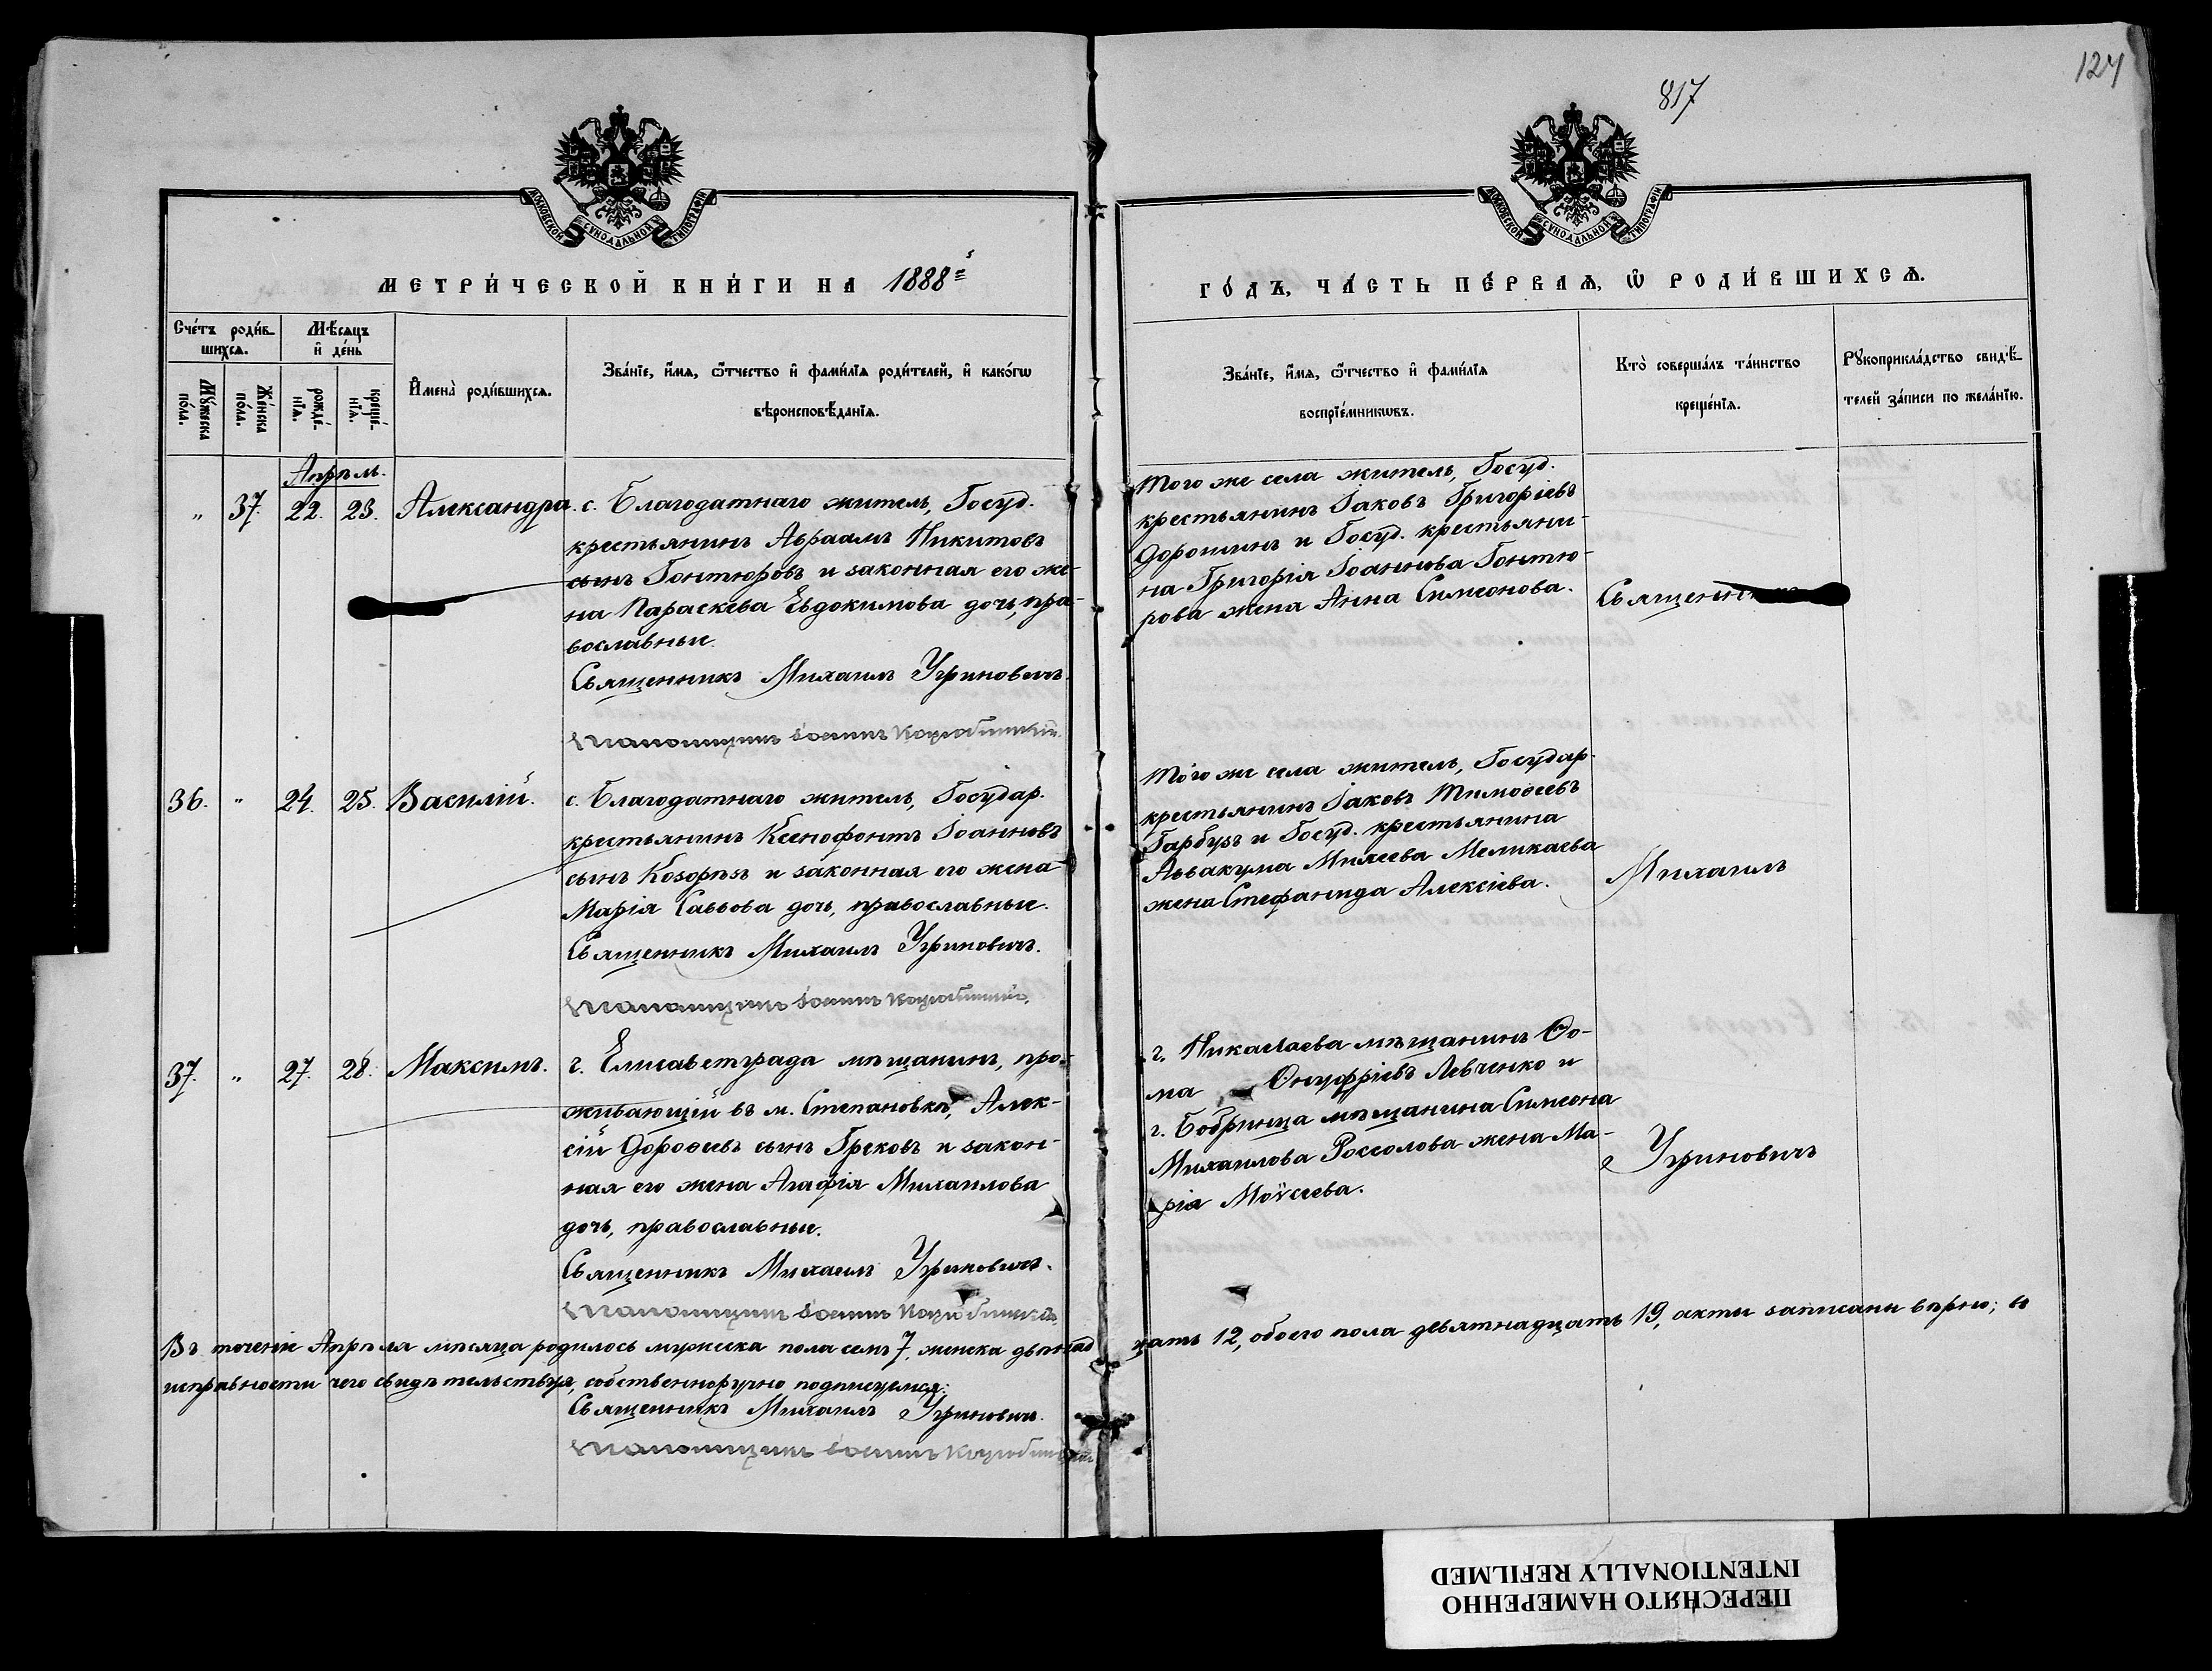 124
817
МОСКОВСКОЙ СѴНОДАЛЬНОЙ ТИПОГРАФІИ
МОСКОВСКОЙ СѴНОДАЛЬНОЙ ТИПОГРАФІИ
МЕТРИ́ЧЕСКОЙ КНИ́ГИ НА 1888й
ГО́ДЪ, ЧА́СТЬ ПЕ́РВАѦ, Ѡ҆ РОДИ́ВШИХСѦ.
Сче́тъ роди́в-
шихсѧ.
Мѣ́сѧцъ
и҆ де́нь
Мꙋ́жеска
по́ла.
Же́нска
по́ла.
рожде́-
нїѧ.
креще́-
нїѧ.
И҆мена̀ роди́вшихсѧ.
Зва́нїе, и҆́мѧ, ѻ҆́тчество и҆ фами́лїѧ роди́телей, и҆ како́гѡ
вѣроисповѣ́данїѧ.
Зва́нїе, и҆́мѧ, ѻ҆́тчество и҆ фами́лїѧ
воспрїе́мникѡвъ.
Кто̀ соверша́лъ та́инство
креще́нїѧ.
Рꙋкоприкла́дство свидѣ́-
телей за́писи по жела́нїю.
Апрѣль.
„ 37. 22. 23. Александра.
с. Благодатнаго житель, Госуд.
крестьянинъ Авраамъ Никитовъ
сынъ Гонтюровъ и законная его же-
на Параскева Евдокимова дочь, пра-
вославные.
Священникъ Михаилъ Угриновичъ.
Псаломщикъ Іоаннъ
Того же села житель, Госуд.
крестьянинъ Іаковъ Григоріевъ
Дорошинъ и Госуд. крестьяни-
на Григорія Іоаннова Гонтю-
рова жена Анна Симеонова.
Священникъ
36. „ 24. 25. Василій.
с. Благодатнаго житель, Государ.
крестьянинъ Ксенофонтъ Іоанновъ
сынъ Козорѣзъ и законная его жена
Марія Саввова дочь, православные.
Священникъ Михаилъ Угриновичъ.
Псаломщикъ Іоаннъ
Того же села житель, Государ.
крестьянинъ Іаковъ Тимоѳеевъ
Гарбузъ и Госуд. крестьянина
Аввакума Михеева Меликаева
жена Стефанида Алексіева.
Михаилъ
37. „ 27. 28. Максимъ.
г. Елисаветграда мѣщанинъ, про-
живающій въ м. Степановкѣ, Алек-
сій Дороѳеевъ сынъ Грековъ и закон-
ная его жена Агафія Михаилова
дочь, православные.
Священникъ Михаилъ Угриновичъ.
Псаломщикъ Іоаннъ
г. Николаева мѣщанинъ Ѳо-
ма Онуфріевъ Левченко и
г. Бобринца мѣщанина Симеона
Михаилова Россолова жена Ма-
рія Моѵсеева.
Угриновичъ
Въ теченіе Апрѣля мѣсяца родилось мужеска пола семь 7, женска двѣнад
цать 12, обоего пола девятнадцать 19, акты записаны вѣрно; въ
исправности чего свидѣтельствуя, собственноручно подписуемся:
Священникъ Михаилъ Угриновичъ.
Псаломщикъ Іоаннъ
ПЕРЕСНЯТО НАМЕРЕННО
INTENTIONALLY REFILMED